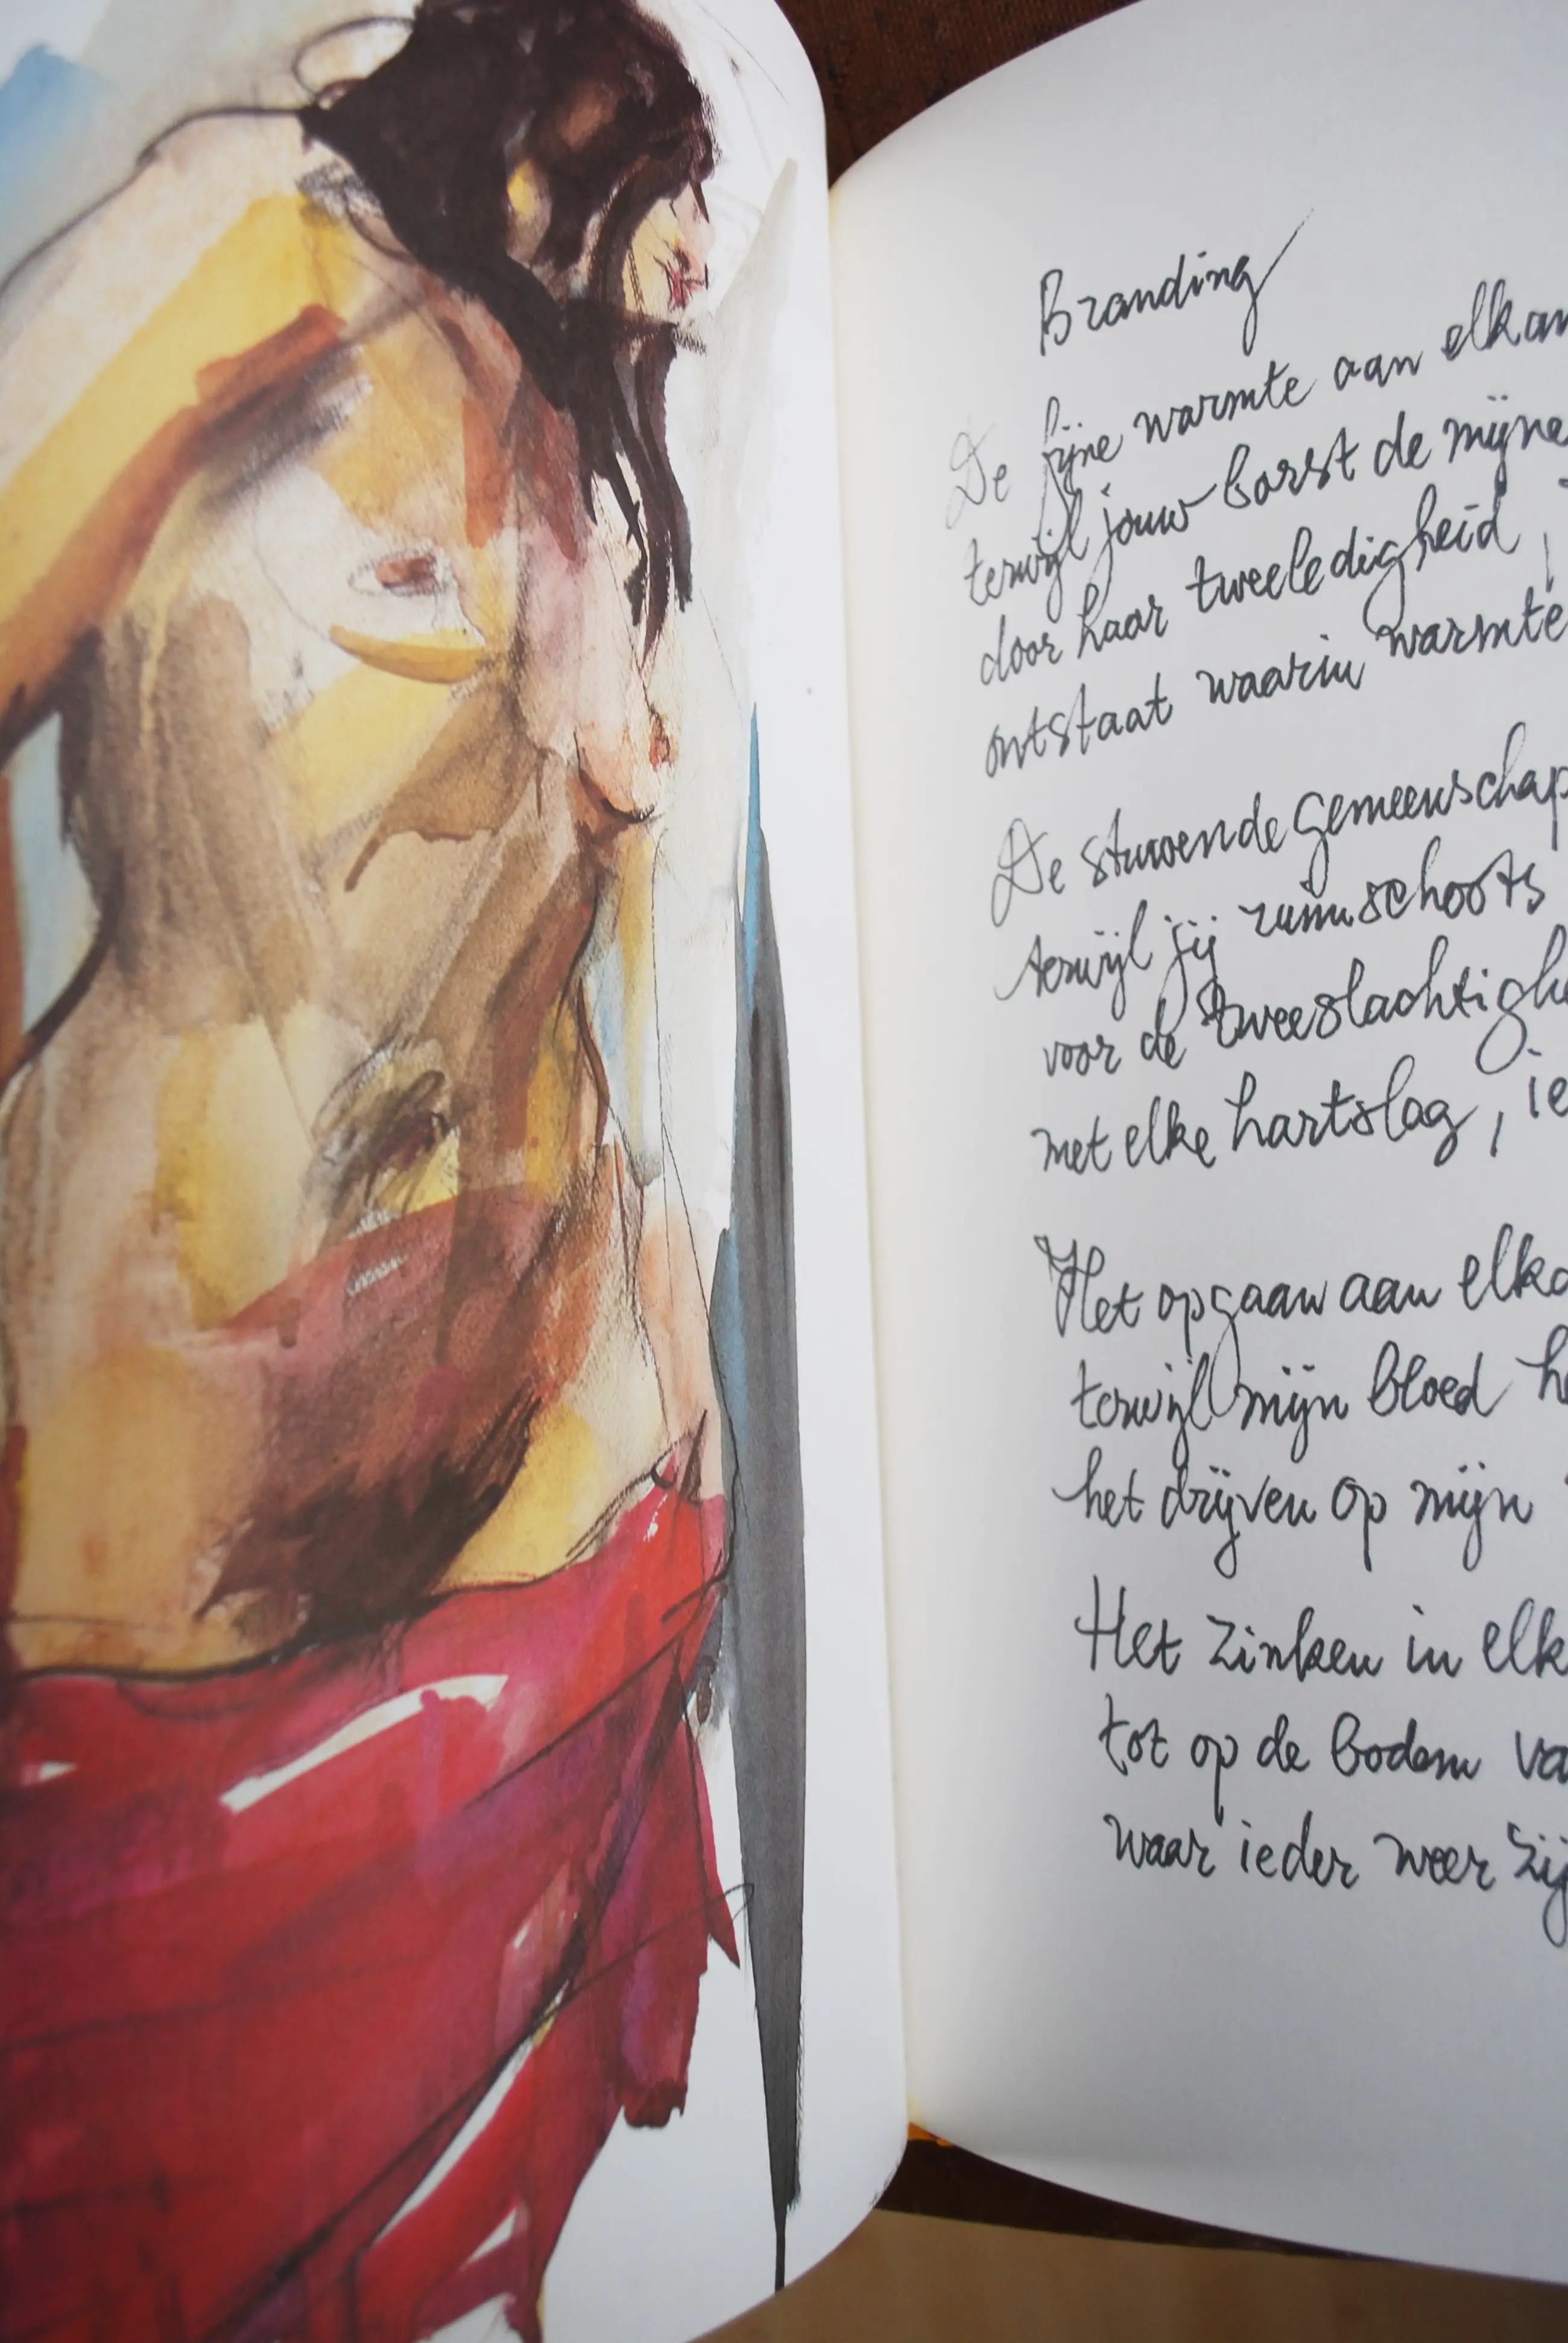 Branding
De fijne warmte aan elkan
terwijl jouw borst de mijne
door haar tweeledigheid,
ontstaat waarin warmte
De stuwende gemeenschap
terwijl jij ruimschoots
voor de tweeslachtighe
met elke hartslag, ie
Het opgaan aan elka
terwijl mijn bloed he
het drijven op mijn
Het zinken in elk
tot op de bodem va
waar ieder weer zij